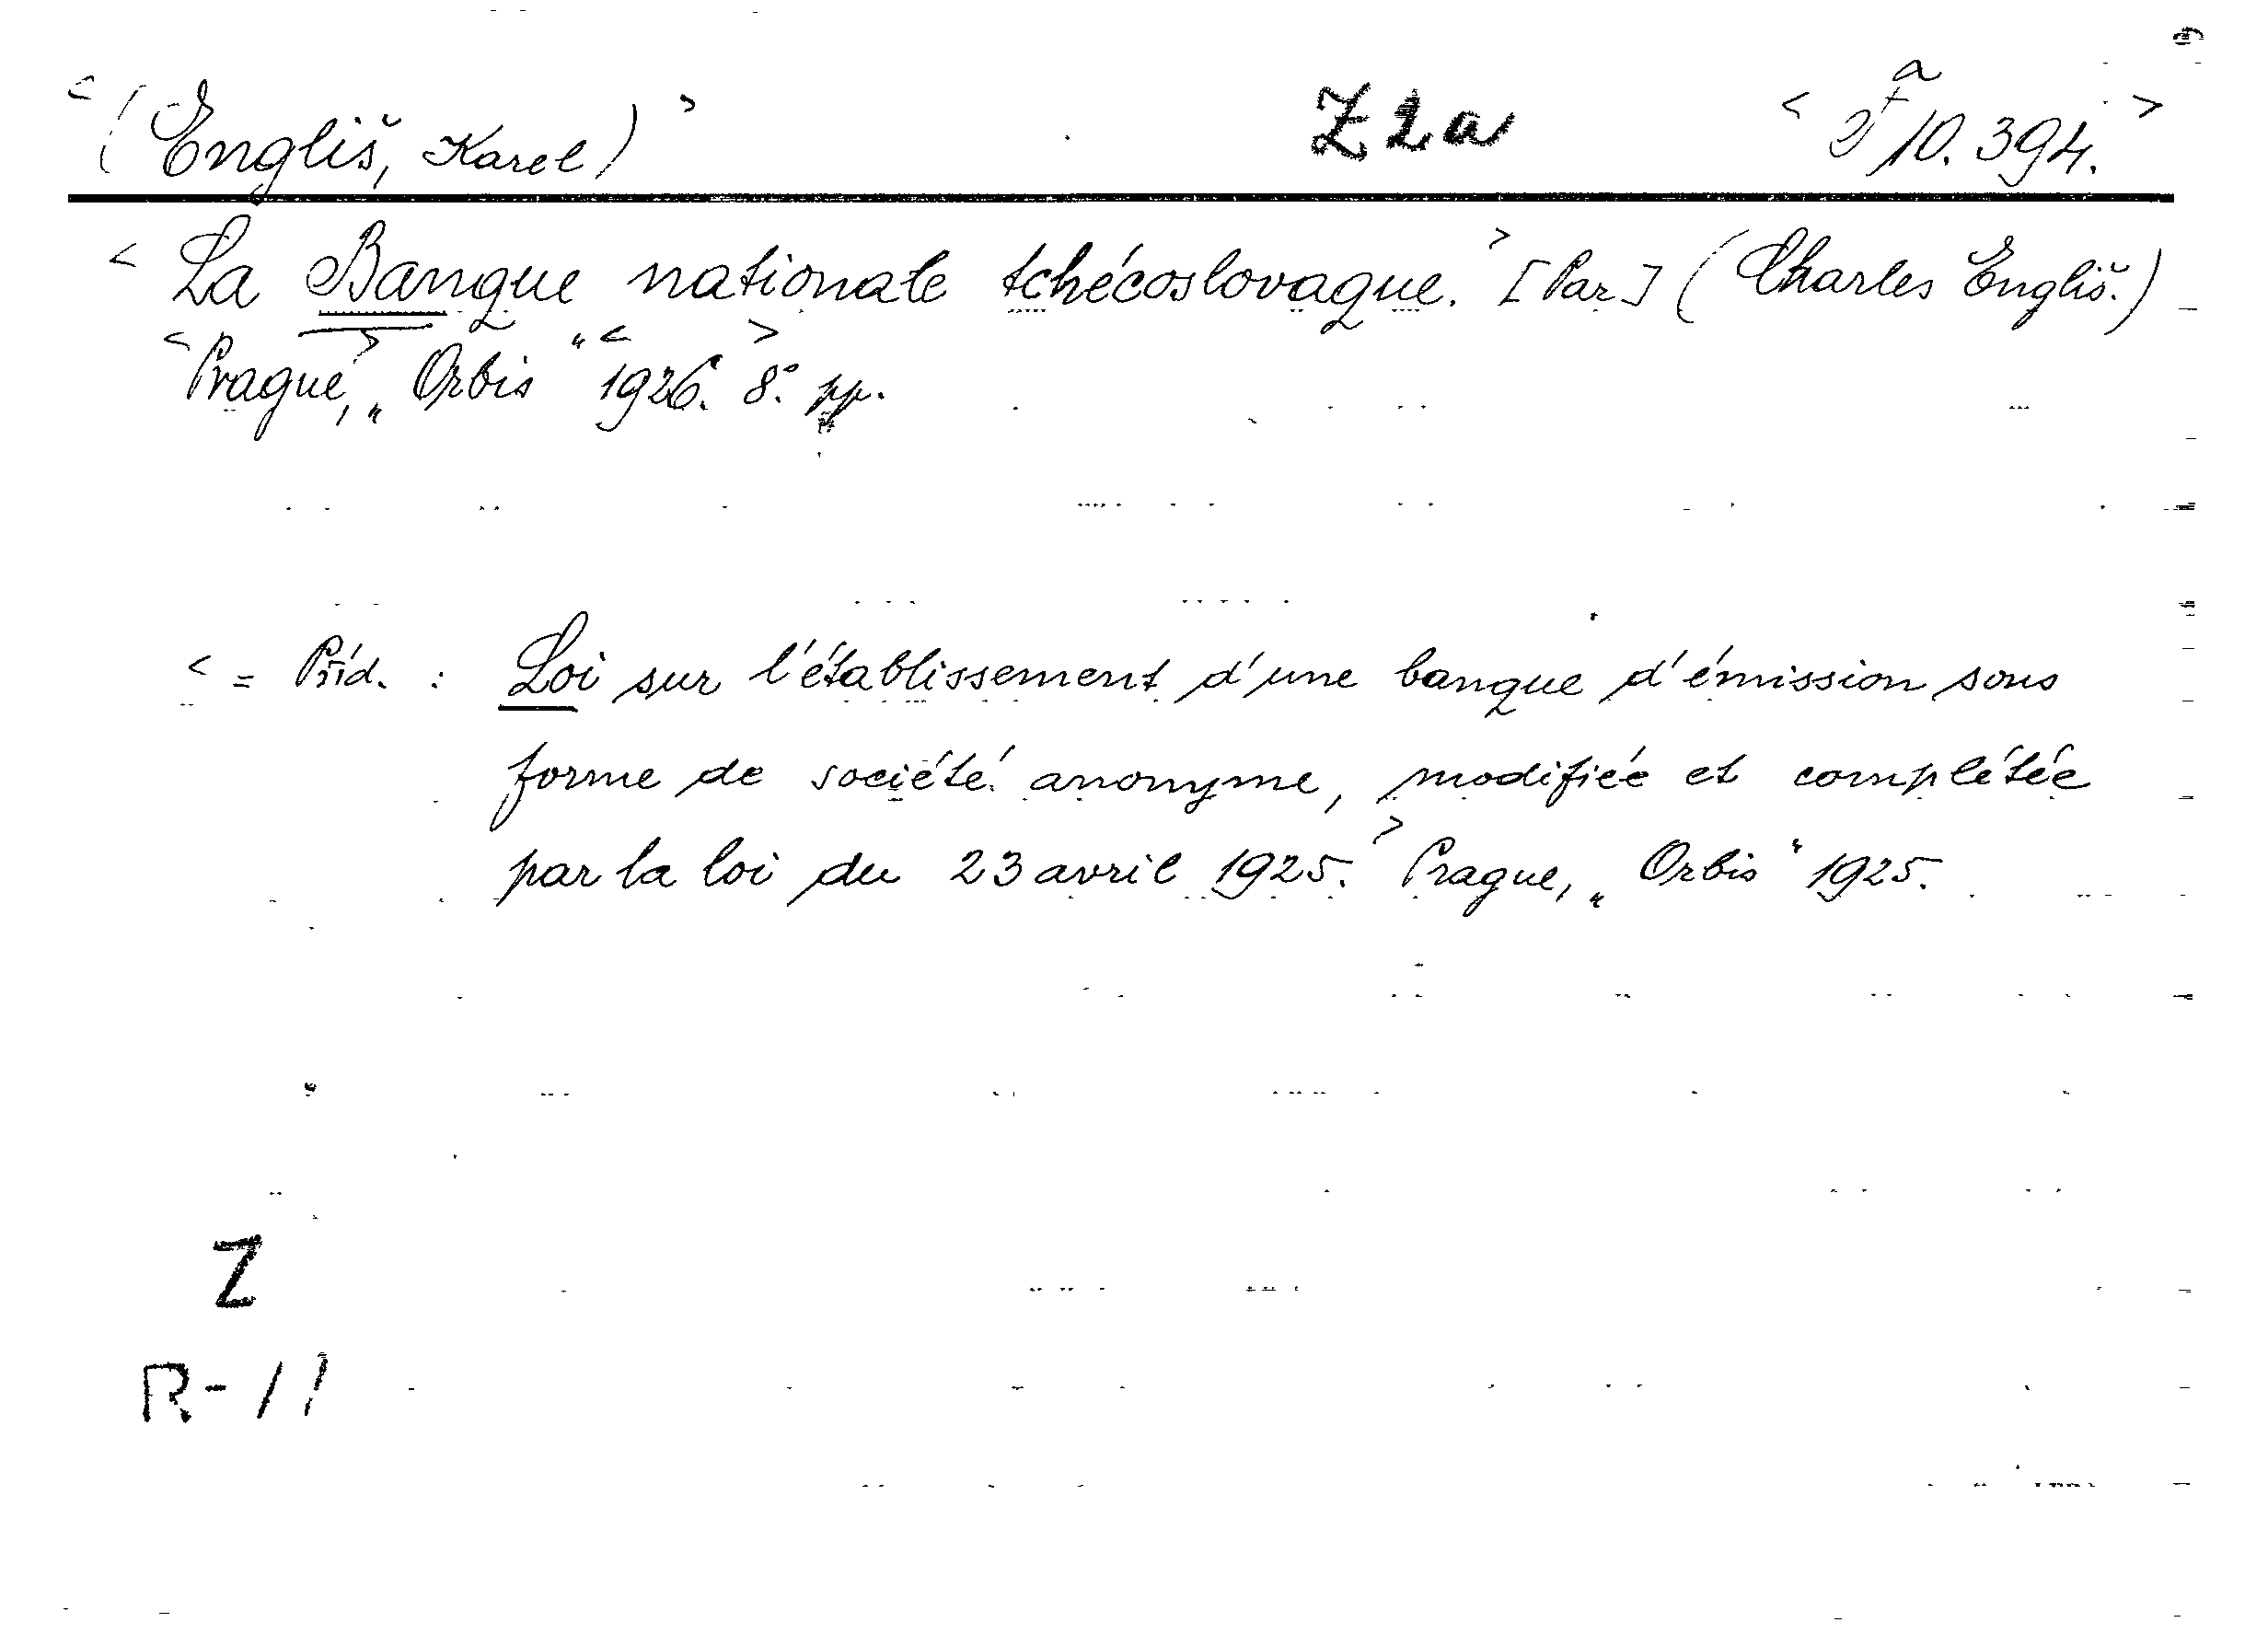 <(Engliš, Karel)> Z2a <F 10.394.>
<La Banque nationale tchécoslovaque.> [Par] (Charles Engliš.)
<Prague,> „Orbis“ <1926.> 8.° pp.
<= Příd. : Loi sur l'établissement d'une banque d'émission sous
forme de société anonyme, modifiée et complétée
par la loi du 23 avril 1925.> Prague, „Orbis“ 1925.
Z
R-11